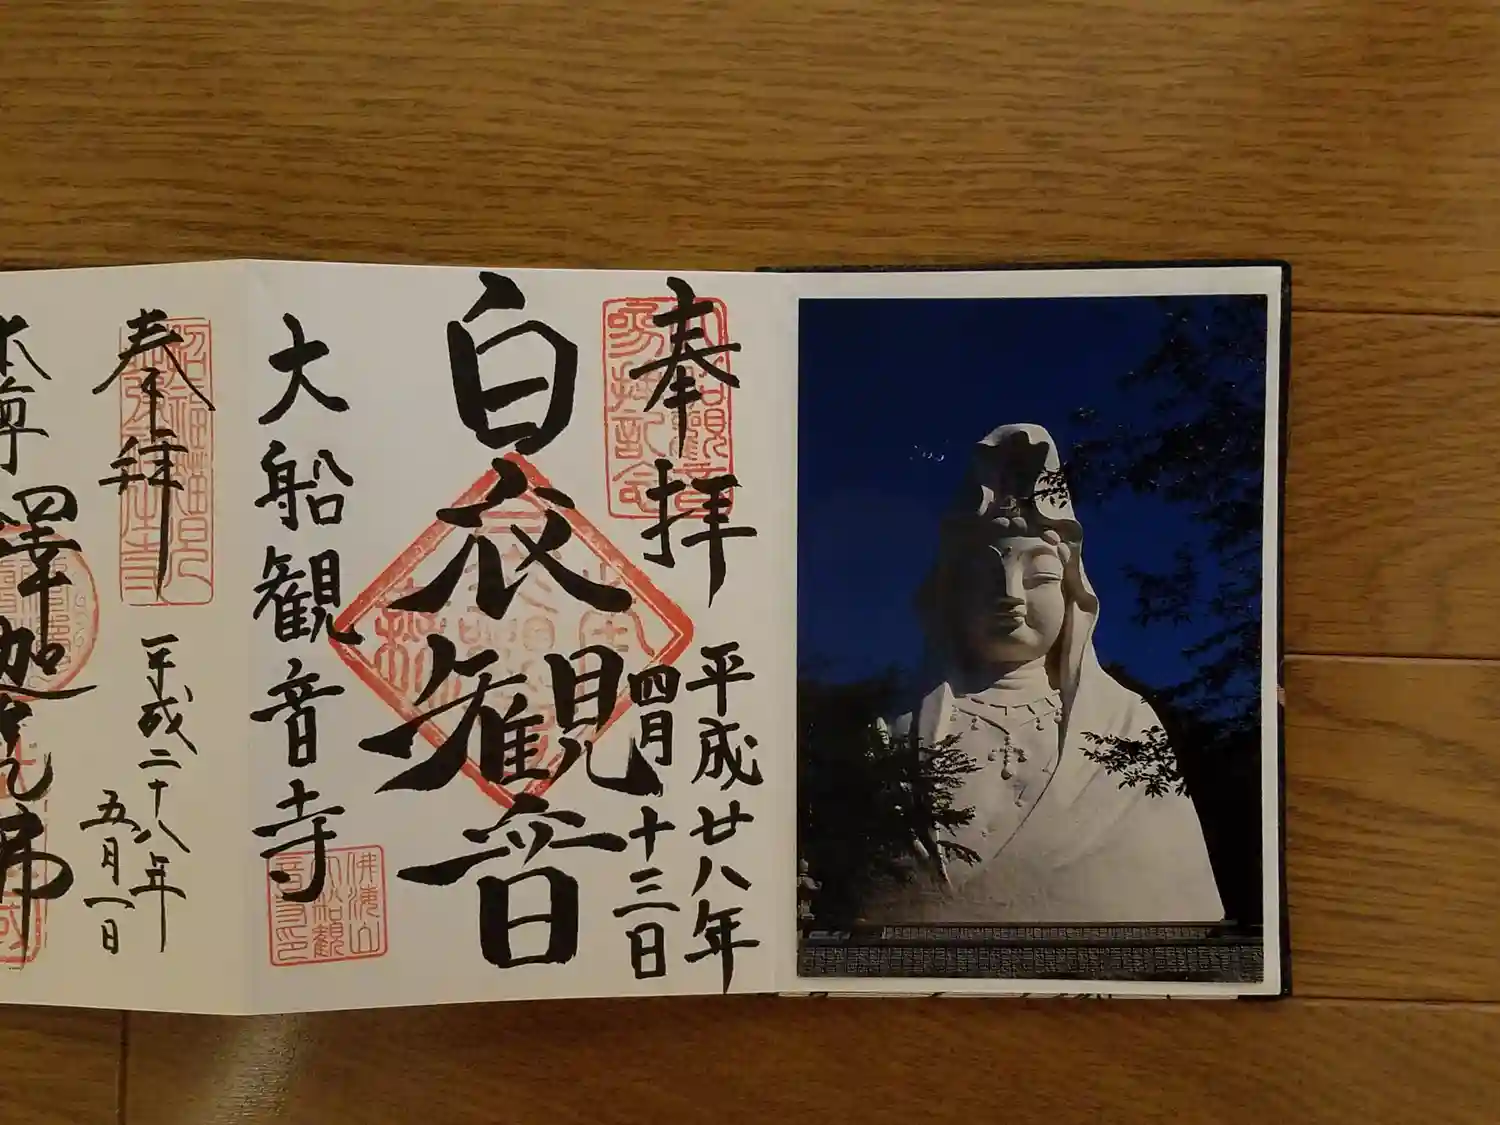 奉拝
平成廿八年
四月十三日
白衣観音
大船観音寺
佛海山
大船観
音寺印
奉拝
平成二十八年
五月一日
本尊
釋迦牟尼佛